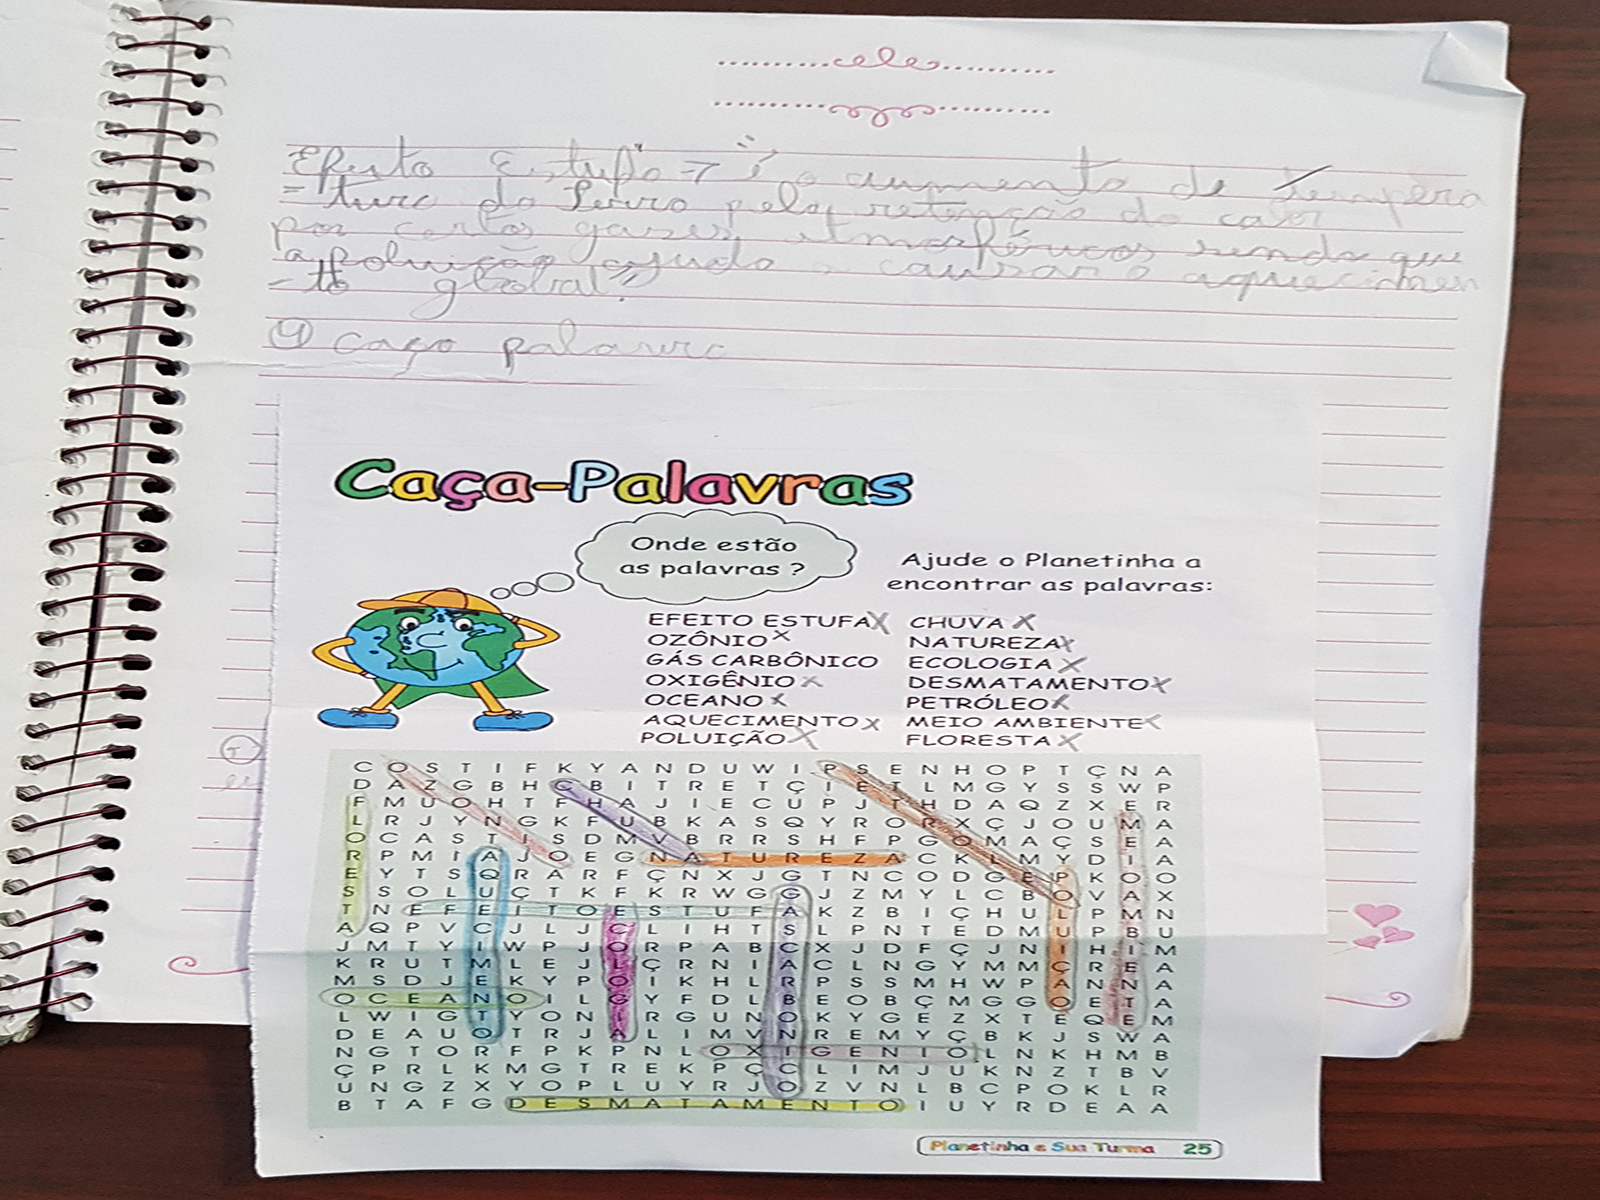 Efeito Estufa → é o aumento de tempera
=tura da Terra pela retenção do calor
por certos gases atmosféricos sendo que
a poluição ajuda a causar o aquecimen
-to global.
4) Caça palavra
Caça-Palavras
Onde estão
as palavras ?
Ajude o Planetinha a
encontrar as palavras:
EFEITO ESTUFA X CHUVA X
OZÔNIO X NATUREZA X
GÁS CARBÔNICO ECOLOGIA X
OXIGÊNIO X DESMATAMENTO X
OCEANO X PETRÓLEO X
AQUECIMENTO X MEIO AMBIENTE X
POLUIÇÃO X FLORESTA X
C O S T I F K Y A N D U W I P S E N H O P T Ç N A
D A Z G B H C B I T R E T Ç I E T L M G Y S S W P
F M U O H T F H A J I E C U P J T H D A Q Z X E R
L R J Y N G K F U B K A S Q Y R O R X Ç J O U M A
O C A S T I S D M V B R R S H F P G O M A Ç S E A
R P M I A J O E G N A T U R E Z A C K L M Y D I A
E Y T S Q R A R F Ç N X J G T N C O D G E P K O O
S S O L U Ç T K F K R W G G J Z M Y L C B O V A X
T N E F E I T O E S T U F A K Z B I Ç H U L P M N
A Q P V C J L J C L I H T S L P N T E D M U P B U
J M T Y I W P J O R P A B C X J D F Ç J N I H I M
K R U T M L E J L Ç R N I A C L N G Y M M Ç R E A
M S D J E K Y P O I K H L R P S S M H W P A N N A
O C E A N O I L G Y F D L B E O B Ç M G G O E T A
L W I G T Y O N I R G U N O K Y G E Z X T E Q E M
D E A U O T R J A L I M V N R E M Y Ç B K J S W A
N G T O R F P K P N L O X I G E N I O L N K H M B
Ç P R L K M G T R E K P Ç C L I M J U K N Z T B V
U N G Z X Y O P L U Y R J O Z V N L B C P O K L R
B T A F G D E S M A T A M E N T O I U Y R D E A A
Planetinha e Sua Turma 25